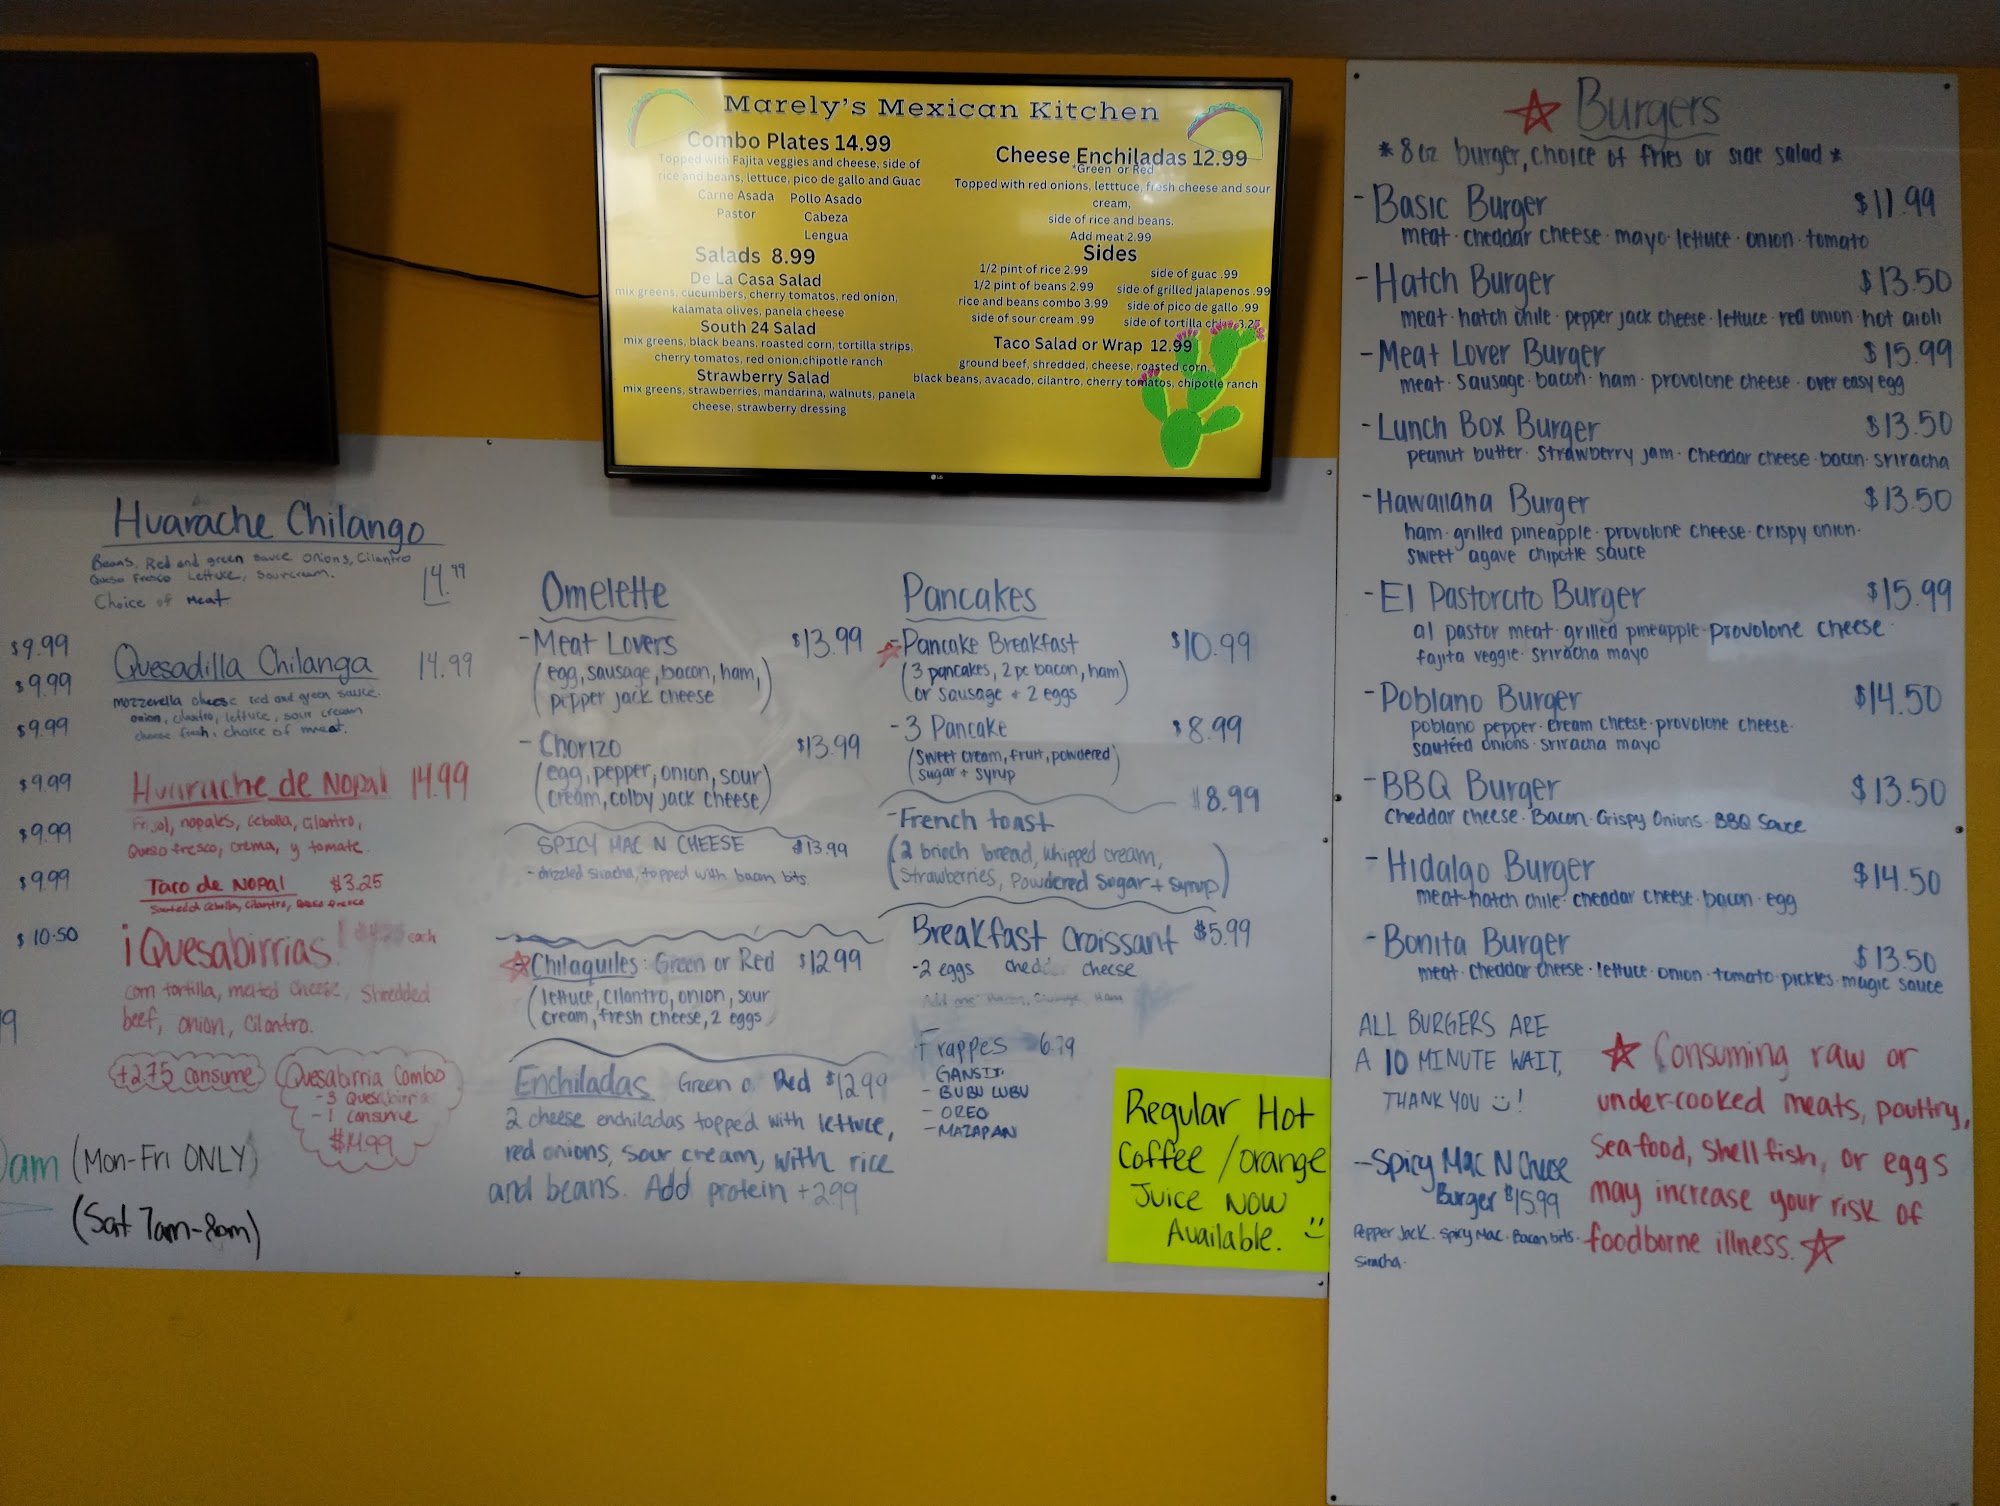 Marely's Mexican Kitchen
Combo Plates 14.99
Topped with Fajita veggies and cheese, side of
rice and beans, lettuce, pico de gallo and Guac
Carne Asada Pollo Asado
Pastor Cabeza
Lengua
Salads 8.99
De La Casa Salad
mix greens, cucumbers, cherry tomatos, red onion,
kalamata olives, panela cheese
South 24 Salad
mix greens, black beans, roasted corn, tortilla strips,
cherry tomatos, red onion,chipotle ranch
Strawberry Salad
mix greens, strawberries, mandarina, walnuts, panela
cheese, strawberry dressing
Cheese Enchiladas 12.99
*Green or Red
Topped with red onions, letttuce, fresh cheese and sour
cream,
side of rice and beans.
Add meat 2.99
Sides
1/2 pint of rice 2.99
1/2 pint of beans 2.99
rice and beans combo 3.99
side of sour cream .99
side of guac .99
side of grilled jalapenos .99
side of pico de gallo .99
side of tortilla chips 3.25
Taco Salad or Wrap 12.99
ground beef, shredded, cheese, roasted corn,
black beans, avacado, cilantro, cherry tomatos, chipotle ranch
LG
$9.99
$9.99
$9.99
$9.99
$9.99
$9.99
$10.50
9
am (Mon-Fri ONLY)
(Sat 7am-8am)
Huarache Chilango
Beans, Red and green sauce onions, Cilantro
Queso Fresco Lettuce, sourcream. 14.99
Choice of meat
Quesadilla Chilanga 14.99
mozzerella cheese red and green sauce.
onion, cilantro, lettuce, sour cream
cheese fresh, choice of meat.
Huarache de Nopal 14.99
Frijol, nopales, cebolla, cilantro,
Queso fresco, crema, y tomate.
Taco de Nopal $3.25
cebolla, cilantro, queso fresco
¡Quesabirrias! each
corn tortilla, melted cheese, shredded
beef, onion, cilantro.
+2.75 consume
Quesabirria Combo
- 3 Quesabirria
- 1 consume
$14.99
Omelette
- Meat Lovers $13.99
(egg, sausage, bacon, ham,
pepper jack cheese)
- Chorizo $13.99
(egg, pepper, onion, sour
cream, colby jack cheese)
SPICY MAC N CHEESE $13.99
- drizzled siracha, topped with bacon bits.
Chilaquiles: Green or Red $12.99
(lettuce, cilantro, onion, sour
cream, fresh cheese, 2 eggs)
Enchiladas Green or Red $12.99
2 cheese enchiladas topped with lettuce,
red onions, sour cream, with rice
and beans. Add protein +2.99
Pancakes
- Pancake Breakfast $10.99
(3 pancakes, 2 pc bacon, ham)
or sausage + 2 eggs
- 3 Pancake $8.99
(sweet cream, fruit, powdered
sugar + syrup)
$8.99
- French toast
(2 brioch bread, whipped cream,
strawberries, powdered sugar + syrup)
Breakfast Croissant $5.99
-2 eggs cheddar cheese
Frappes 6.79
GANSIT
- BUBU LUBU
- OREO
- MAZAPAN
Regular Hot
Coffee / orange
Juice Now
Available.
Burgers
* 8 oz burger, choice of fries or side salad *
- Basic Burger $11.99
meat · cheddar cheese · mayo · lettuce · onion · tomato
- Hatch Burger $13.50
meat · hatch chile · pepper jack cheese · lettuce · red onion · hot aioli
- Meat Lover Burger $15.99
meat · sausage · bacon · ham · provolone cheese · over easy egg
- Lunch Box Burger $13.50
peanut butter · strawberry jam · cheddar cheese · bacon · sriracha
- Hawaiiana Burger $13.50
ham · grilled pineapple · provolone cheese · crispy onion ·
sweet agave chipotle sauce
- El Pastorcito Burger $15.99
al pastor meat · grilled pineapple · provolone cheese ·
fajita veggie · sriracha mayo
- Poblano Burger $14.50
poblano pepper · cream cheese · provolone cheese ·
sautéed onions · sriracha mayo
- BBQ Burger $13.50
Cheddar cheese · Bacon · Crispy Onions · BBQ Sauce
- Hidalgo Burger $14.50
meat · hatch chile · cheddar cheese · bacon · egg
- Bonita Burger $13.50
meat · cheddar cheese · lettuce · onion · tomato · pickles · magic sauce
ALL BURGERS ARE
A 10 MINUTE WAIT,
THANK YOU !
- Spicy Mac N Cheese
Burger $15.99
Pepper Jack · Spicy Mac · Bacon bits ·
Siracha ·
Consuming raw or
under-cooked meats, poultry,
seafood, shellfish, or eggs
may increase your risk of
foodborne illness.